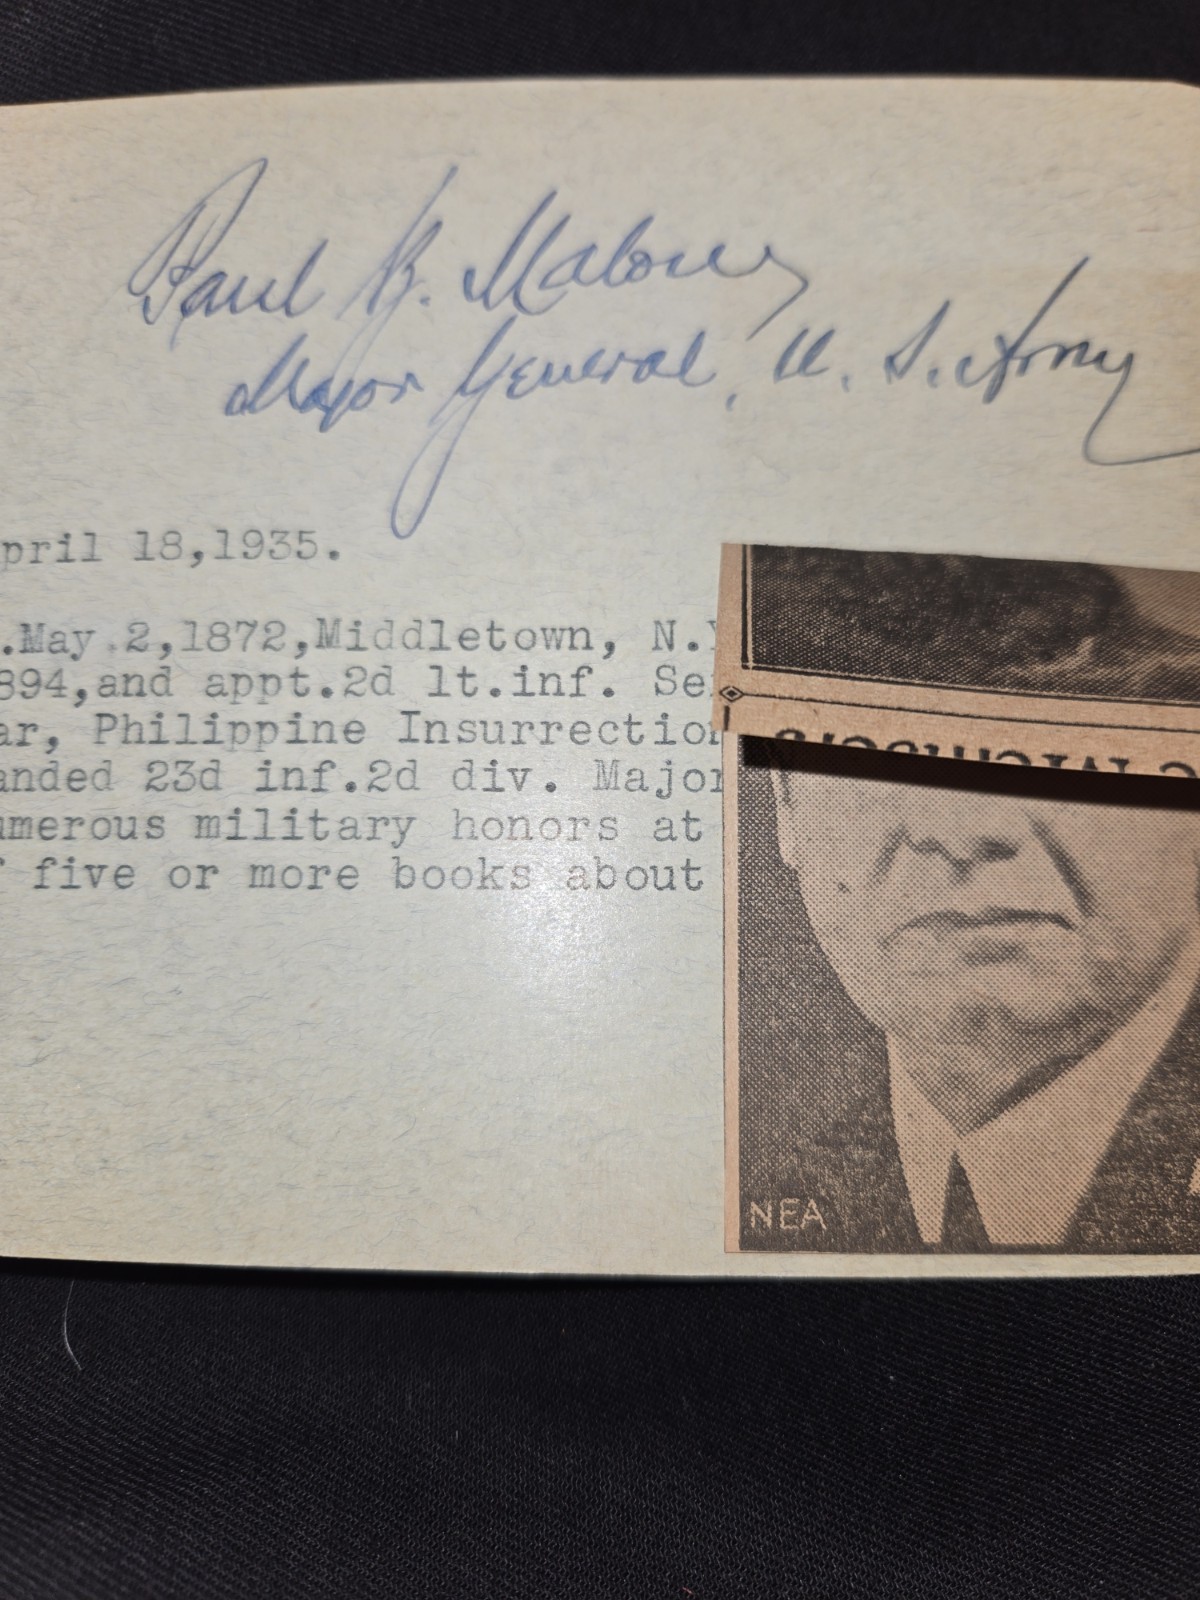 Paul B. Malone,
Major General, U. S. Army
pril 18,1935.
.May 2,1872,Middletown, N.Y
894,and appt.2d lt.inf. Se
ar, Philippine Insurrection
anded 23d inf.2d div. Major
umerous military honors at
f five or more books about
NEA